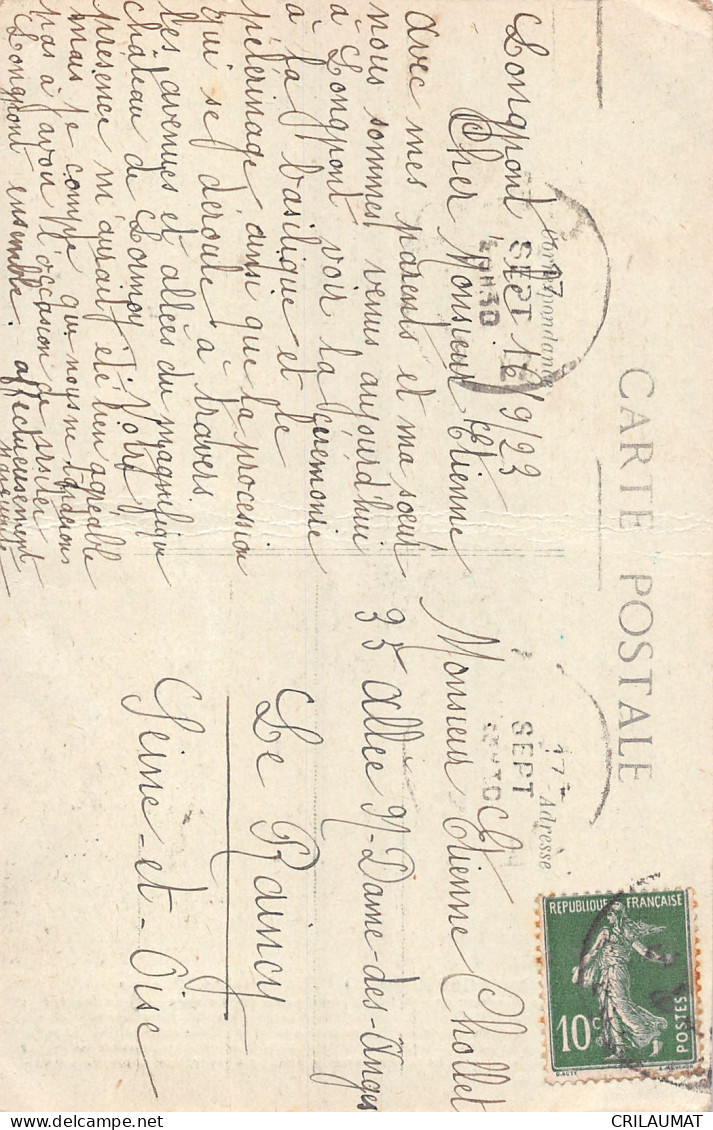 CARTE POSTALE
Correspondance
Longpont 16/9/23
Cher Monsieur Etienne
avec mes parents et ma soeur
nous sommes venus aujourd'hui
à Longpont voir la ceremonie
à la basilique et le
pélerinage ainsi que la procession
qui se déroule à travers
les avenues et allées du magnifique
château de Lormoy. Votre
présence m'aurait été bien agréable
mais je compte que nous ne tarderons
pas à avoir l'occasion de visiter
Longpont ensemble. affectueusement
Adresse
Monsieur Etienne Chollet
35 allée N-Dame-des-Anges
Le Raincy
Seine-et-Oise
17
SEPT
17
SEPT
REPUBLIQUE FRANÇAISE
10c
POSTES
CRILAUMAT